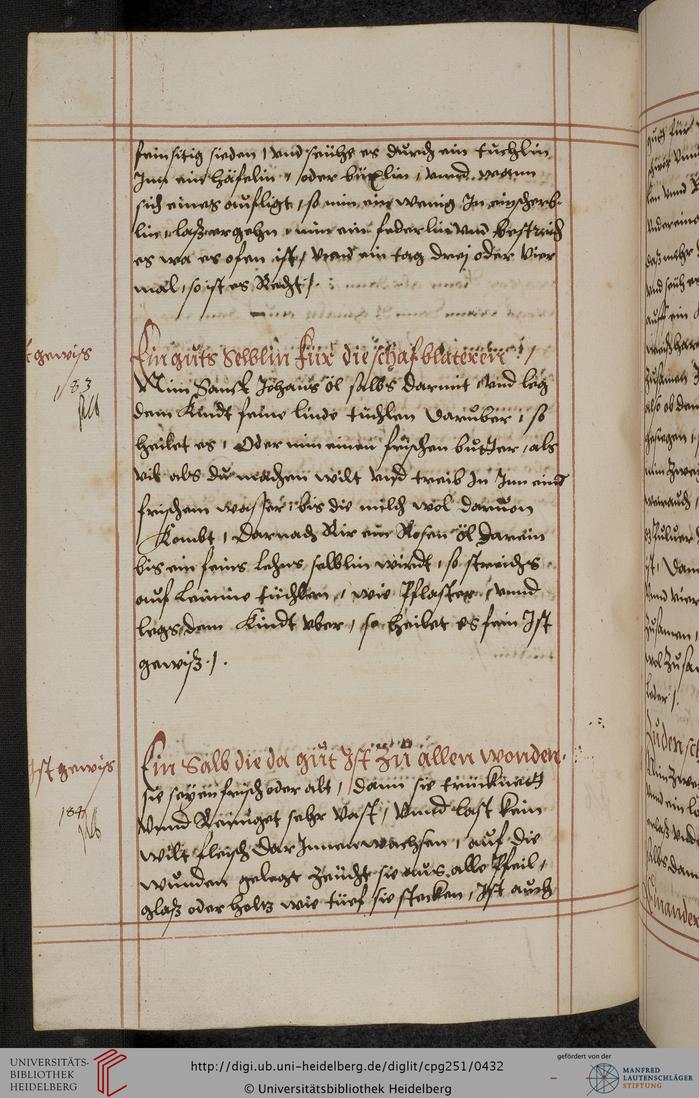 fein sitig sieden, vnd seühe es durch ein tuchlin
Inn ein häfelin, oder büxlin, vnnd wann
sich eines aufligt, so nim ein wenig In ein scherb-
lin, laß zergehn, nim ein federlin vnd bestreich
es wa es ofen ist, vnnd ein tag drej oder vier
mal, so ist es Recht.
gewiß
Ein guts Selblin für die schafblateren
183
Nim Sanct Johans öl salbs darmit, vnd leg
dem Kindt feine linde tüchlen darüber, so
heilet es, Oder nim einen frischen butter, als
vil als du machen wilt vnd treib In Inn eim
frischem wasser, bis die milch wol daruon
Kombt, Darnach Rir ein Rosen öl darein
bis ein feins selblin wirdt, so streichs
auf leinine tüchlen, wie Pflaster, vnnd
legs dem Kindt vber, so heilet es fein Ist
gewiß.
Ist gewiß
Ein Salb die da gut Ist Zu allen wonden.
184
sie seyen frisch oder alt, dann sie trücknett
vnnd Reiniget sehr vast, vnnd last kein
wilt fleisch darInnen wachsen, auf die
wunden gelegt Zeücht sie aus alle Pfeil,
glaß oder holtz wie tüef sie stecken, Ist auch
UNIVERSITÄTS-
BIBLIOTHEK
HEIDELBERG
http://digi.ub.uni-heidelberg.de/diglit/cpg251/0432
© Universitätsbibliothek Heidelberg
gefördert von der
MANFRED
LAUTENSCHLÄGER
STIFTUNG